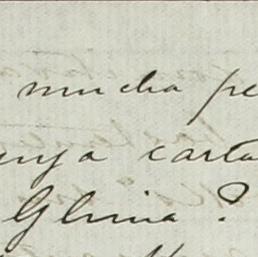 mucha pe
uya carta
Gloria?